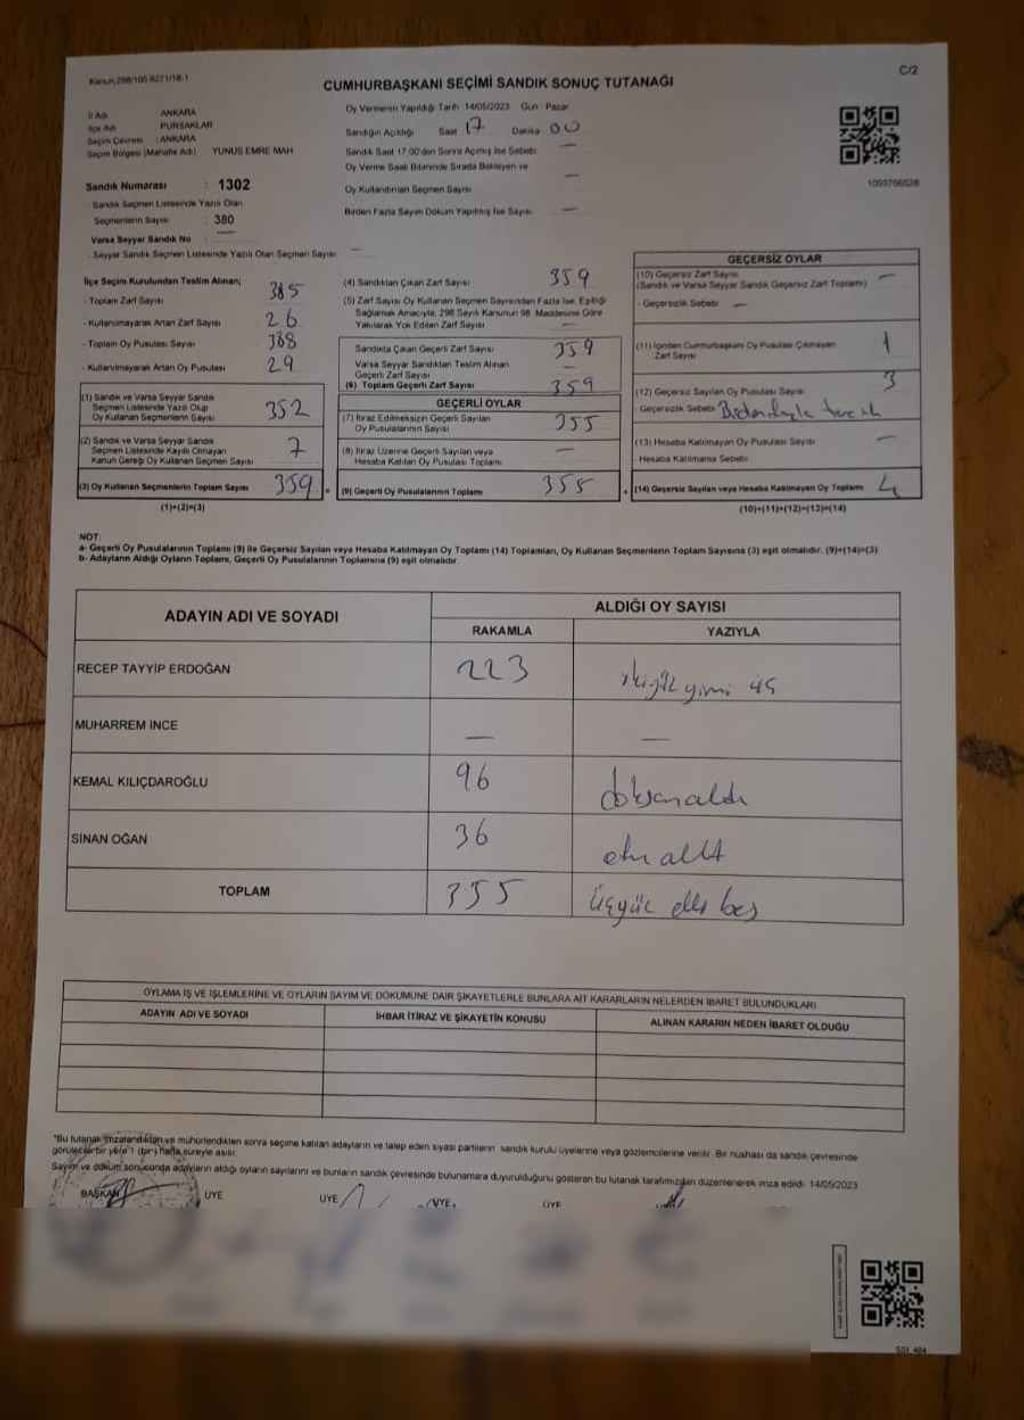 C/2
CUMHURBAŞKANI SEÇİMİ SANDIK SONUÇ TUTANAĞI
İl Adı ANKARA
İlçe Adı PURSAKLAR
Seçim Çevresi : ANKARA
Seçim Bölgesi (Mahalle Adı) YUNUS EMRE MAH
Sandık Numarası : 1302
Sandık Seçmen Listesinde Yazılı Olan
Seçmenlerin Sayısı : 380
Varsa Seyyar Sandık No
Seyyar Sandık Seçmen Listesinde Yazılı Olan Seçmen Sayısı —
Oy Vermenin Yapıldığı Tarih 14/05/2023 Gün : Pazar
Sandığın Açıldığı Saat 17 Dakika 00
Sandık Saat 17.00'den Sonra Açılmış İse Sebebi —
Oy Verme Saati Bitiminde Sırada Bekleyen ve
Oy Kullandırılan Seçmen Sayısı —
Birden Fazla Sayım Döküm Yapılmış İse Sayısı —
İlçe Seçim Kurulundan Teslim Alınan;
- Toplam Zarf Sayısı 385
- Kullanılmayarak Artan Zarf Sayısı 26
- Toplam Oy Pusulası Sayısı 388
- Kullanılmayarak Artan Oy Pusulası 29
(1) Sandık ve Varsa Seyyar Sandık
Seçmen Listesinde Yazılı Olup
Oy Kullanan Seçmenlerin Sayısı 352
(2) Sandık ve Varsa Seyyar Sandık
Seçmen Listesinde Kayıtlı Olmayan
Kanun Gereği Oy Kullanan Seçmen Sayısı 7
(3) Oy Kullanan Seçmenlerin Toplam Sayısı 359
(1)+(2)=(3)
(4) Sandıktan Çıkan Zarf Sayısı 359
(5) Zarf Sayısı Oy Kullanan Seçmen Sayısından Fazla İse, Eşitliği
Sağlamak Amacıyla, 298 Sayılı Kanunun 98. Maddesine Göre
Yakılarak Yok Edilen Zarf Sayısı —
Sandıkta Çıkan Geçerli Zarf Sayısı 359
Varsa Seyyar Sandıktan Teslim Alınan
Geçerli Zarf Sayısı —
(6) Toplam Geçerli Zarf Sayısı 359
GEÇERLİ OYLAR
(7) İtiraz Edilmeksizin Geçerli Sayılan
Oy Pusulalarının Sayısı 355
(8) İtiraz Üzerine Geçerli Sayılan veya
Hesaba Katılan Oy Pusulası Toplamı —
(9) Geçerli Oy Pusulalarının Toplamı 355
GEÇERSİZ OYLAR
(10) Geçersiz Zarf Sayısı —
(Sandık ve Varsa Seyyar Sandık Geçersiz Zarf Toplamı)
- Geçersizlik Sebebi —
(11) İçinden Cumhurbaşkanı Oy Pusulası Çıkmayan 1
Zarf Sayısı
(12) Geçersiz Sayılan Oy Pusulası Sayısı 3
Geçersizlik Sebebi
(13) Hesaba Katılmayan Oy Pusulası Sayısı —
Hesaba Katılmama Sebebi
(14) Geçersiz Sayılan veya Hesaba Katılmayan Oy Toplamı 4
(10)+(11)+(12)+(13)=(14)
NOT:
a- Geçerli Oy Pusulalarının Toplamı (9) ile Geçersiz Sayılan veya Hesaba Katılmayan Oy Toplamı (14) Toplamları, Oy Kullanan Seçmenlerin Toplam Sayısına (3) eşit olmalıdır. (9)+(14)=(3)
b- Adayların Aldığı Oyların Toplamı, Geçerli Oy Pusulalarının Toplamına (9) eşit olmalıdır.
ADAYIN ADI VE SOYADI ALDIĞI OY SAYISI
RAKAMLA YAZIYLA
RECEP TAYYİP ERDOĞAN 223
MUHARREM İNCE — —
KEMAL KILIÇDAROĞLU 96 doksanaltı
SİNAN OĞAN 36 otuz altı
TOPLAM 355 üçyüz elli beş
OYLAMA İŞ VE İŞLEMLERİNE VE OYLARIN SAYIM VE DÖKÜMÜNE DAİR ŞİKAYETLERLE BUNLARA AİT KARARLARIN NELERDEN İBARET BULUNDUKLARI
ADAYIN ADI VE SOYADI İHBAR İTİRAZ VE ŞİKAYETİN KONUSU ALINAN KARARIN NEDEN İBARET OLDUĞU
"Bu tutanak imzalandıktan ve mühürlendikten sonra seçime katılan adayların ve talep eden siyasi partilerin sandık kurulu üyelerine veya gözlemcilerine verilir. Bir nüshası da sandık çevresinde
görülecek bir yere 1 (bir) hafta süreyle asılır.
Sayım ve döküm sonucunda adayların aldığı oyların sayılarını ve bunların sandık çevresinde bulunanlara duyurulduğunu gösteren bu tutanak tarafımızdan düzenlenerek imza edildi. 14/05/2023
BAŞKAN ÜYE ÜYE ÜYE ÜYE